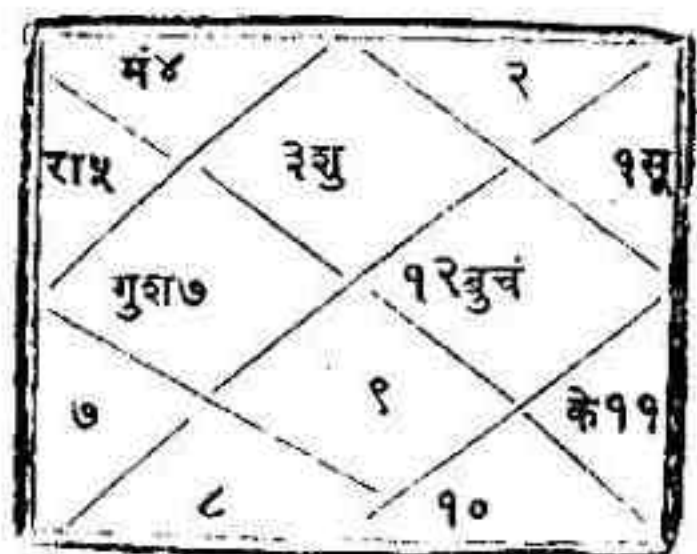 मं४ २
रा५ ३शु १सू
गुश७ १२बुचं
७ ९ के११
८ १०